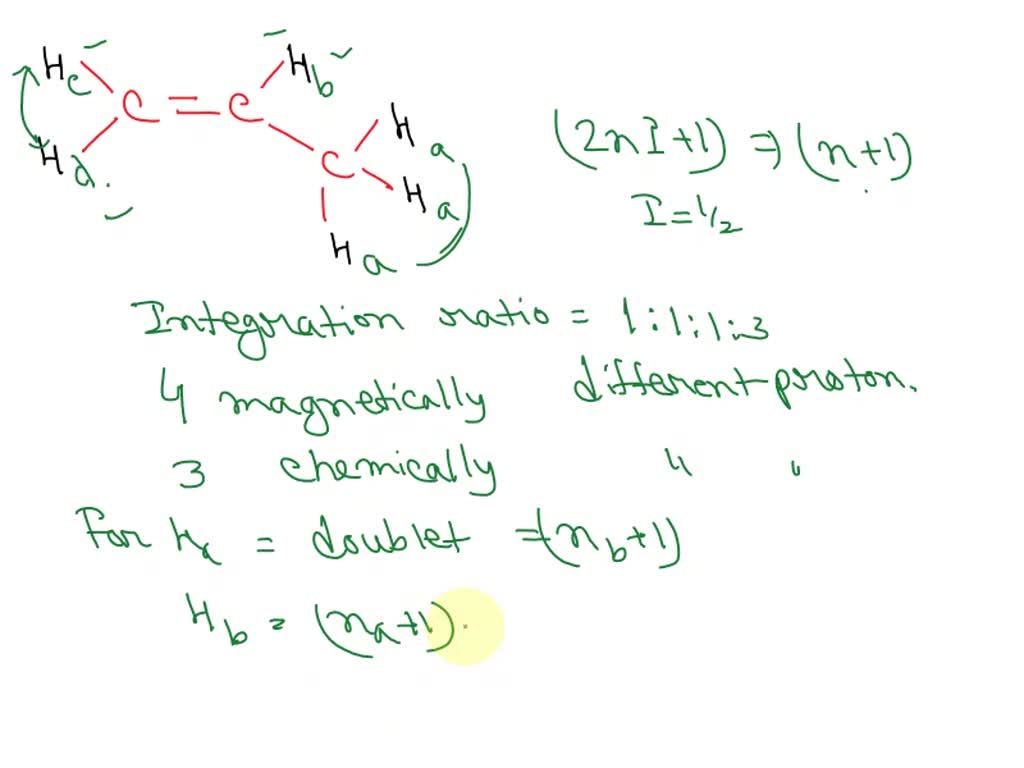 Hc Hb
C = C
Ha
Hd C
Ha
Ha
(2nI+1) ⇒ (n+1)
I = 1/2
Integration ratio = 1:1:1:3
4 magnetically different proton.
3 chemically " "
For Ha = doublet = (nb+1)
Hb = (na+1).